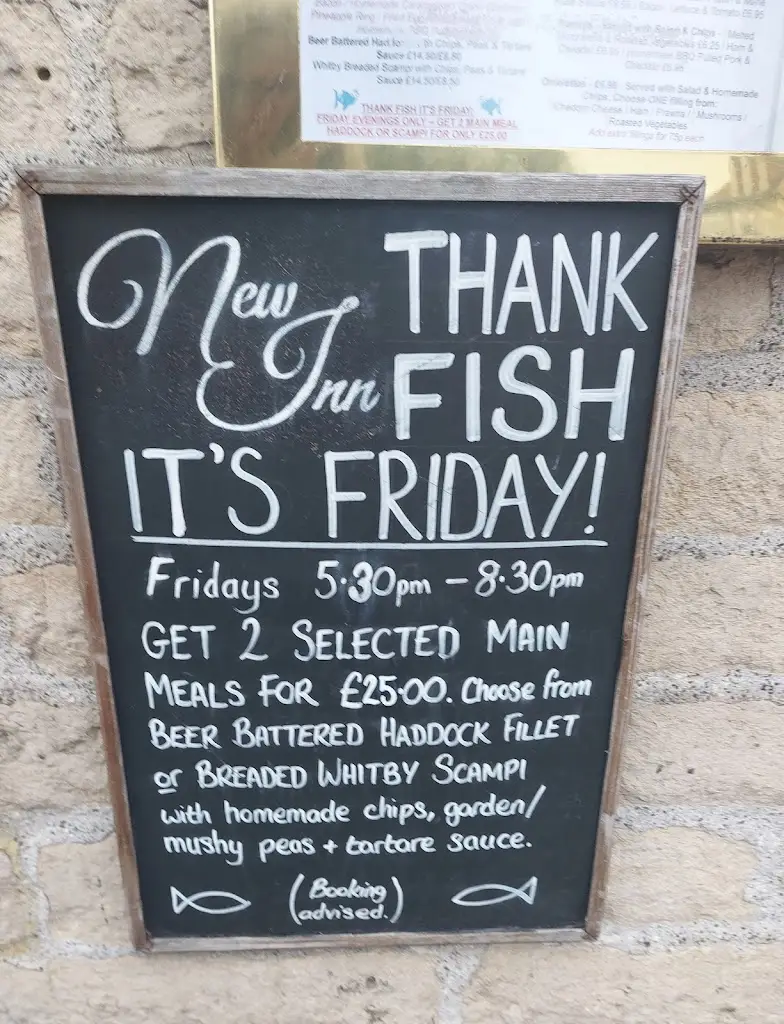 Beer Battered Had Chips, Peas & Tartare
Sauce £14.50/£8.50
Whitby Breaded Scampi with Chips, Peas & Tartare
Sauce £14.50/£8.50
THANK FISH IT'S FRIDAY!
FRIDAY EVENINGS ONLY – GET 2 MAIN MEAL
HADDOCK OR SCAMPI FOR ONLY £25.00
Omelettes - £5.95 Served with Salad & Homemade
Chips. Choose ONE filling from:
Cheddar Cheese / Ham / Prawns / Mushrooms /
Roasted Vegetables
Add extra fillings for 75p each
New Inn
THANK
FISH
IT'S FRIDAY!
Fridays 5·30pm – 8·30pm
GET 2 SELECTED MAIN
MEALS FOR £25·00. Choose from
BEER BATTERED HADDOCK FILLET
or BREADED WHITBY SCAMPI
with homemade chips, garden/
mushy peas + tartare sauce.
(Booking
advised.)